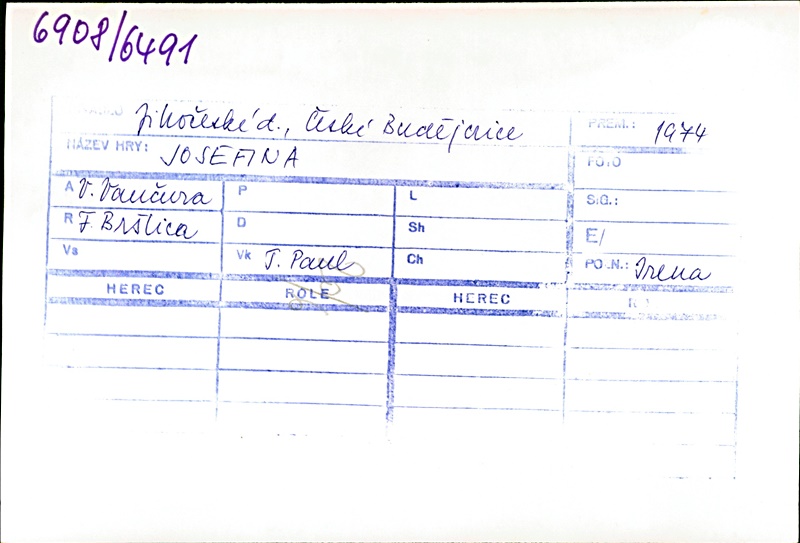 6908/6491
Jihočeské d., České Budějovice PREM.: 1974
NÁZEV HRY: JOSEFINA FOTO
A V. Vančura P L SIG.:
R F. Bršlica D Sh E/
Vs Vk T. Paul Ch POZN.: Irena
HEREC ROLE HEREC